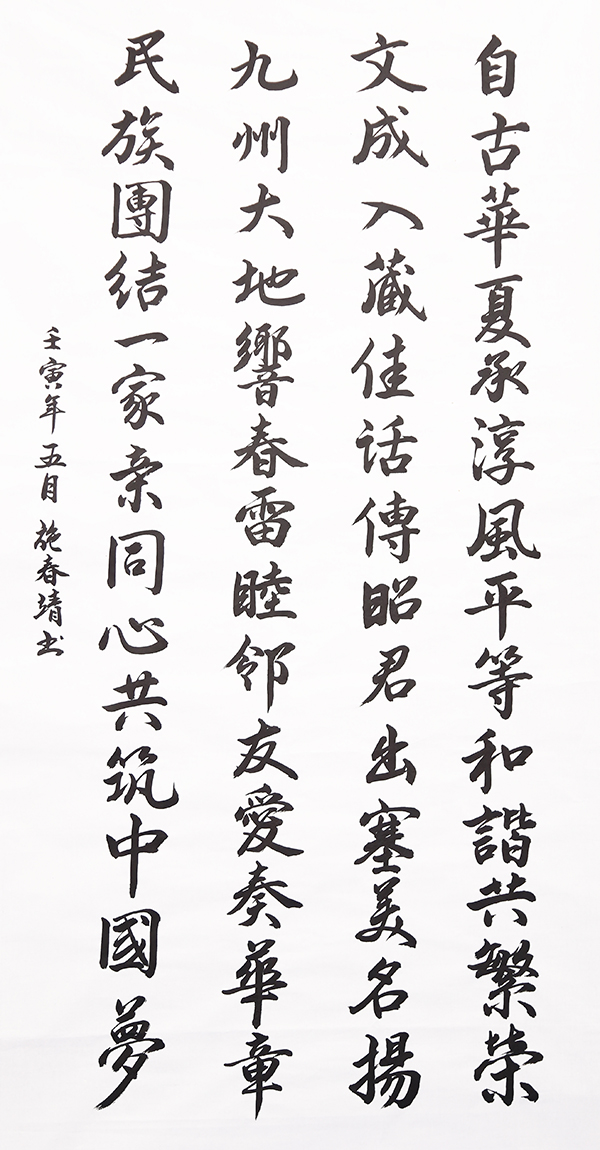 自古華夏承淳風平等和諧共繁榮
文成入藏佳話傳昭君出塞美名揚
九州大地響春雷睦邻友愛奏華章
民族團结一家亲同心共筑中國夢
壬寅年五月施春靖书